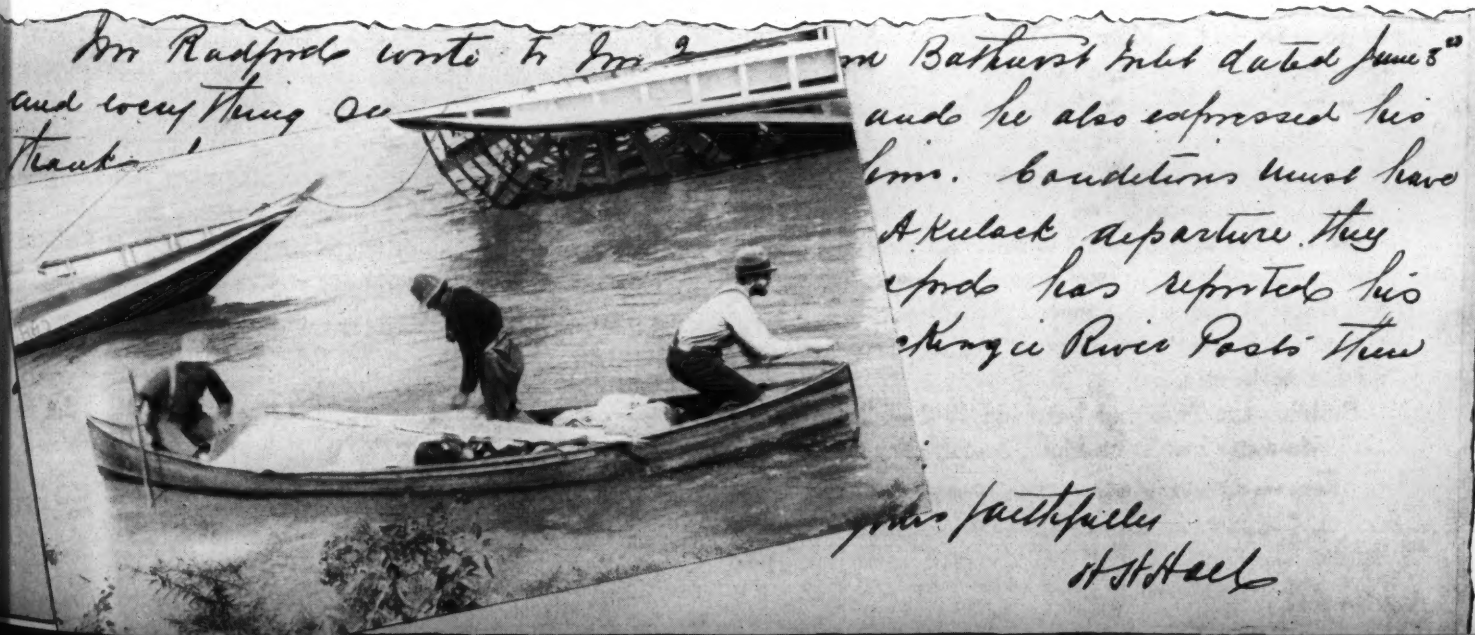 Mr Radford wrote to Mr Bathurst Inlet dated June 8
and everything and he also expressed his
thanks him. Conditions must have
Akulack departure they
has reported his
River Posts then
yours faithfully
H H Hall